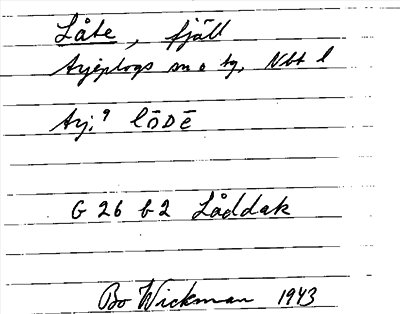 Låte, fjäll
Arjeplogs sn o tg, Nbt l
Arj.⁹ lōDē
G 26 b 2 Låddak
Bo Wickman 1943